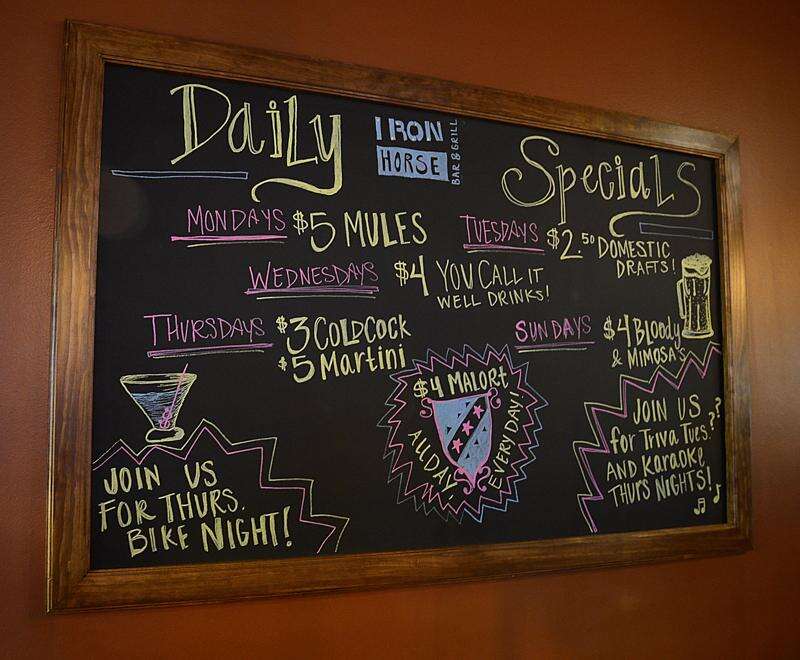 Daily
IRON
HORSE
BAR & GRILL
Specials
MONDAYS $5 MULES
TUESDAYS $2.50 DOMESTIC
DRAFTS!
WEDNESDAYS $4 YOU CALL IT
WELL DRINKS!
THURSDAYS $3 COLDCOCK
$5 Martini
SUNDAYS $4 Bloody
& MIMOSA'S
$4 MALORT
ALL DAY
EVERY DAY!
JOIN US
FOR THURS.
BIKE NIGHT!
JOIN US
for Triva Tues.??
AND Karaoke
THURS NIGHTS!